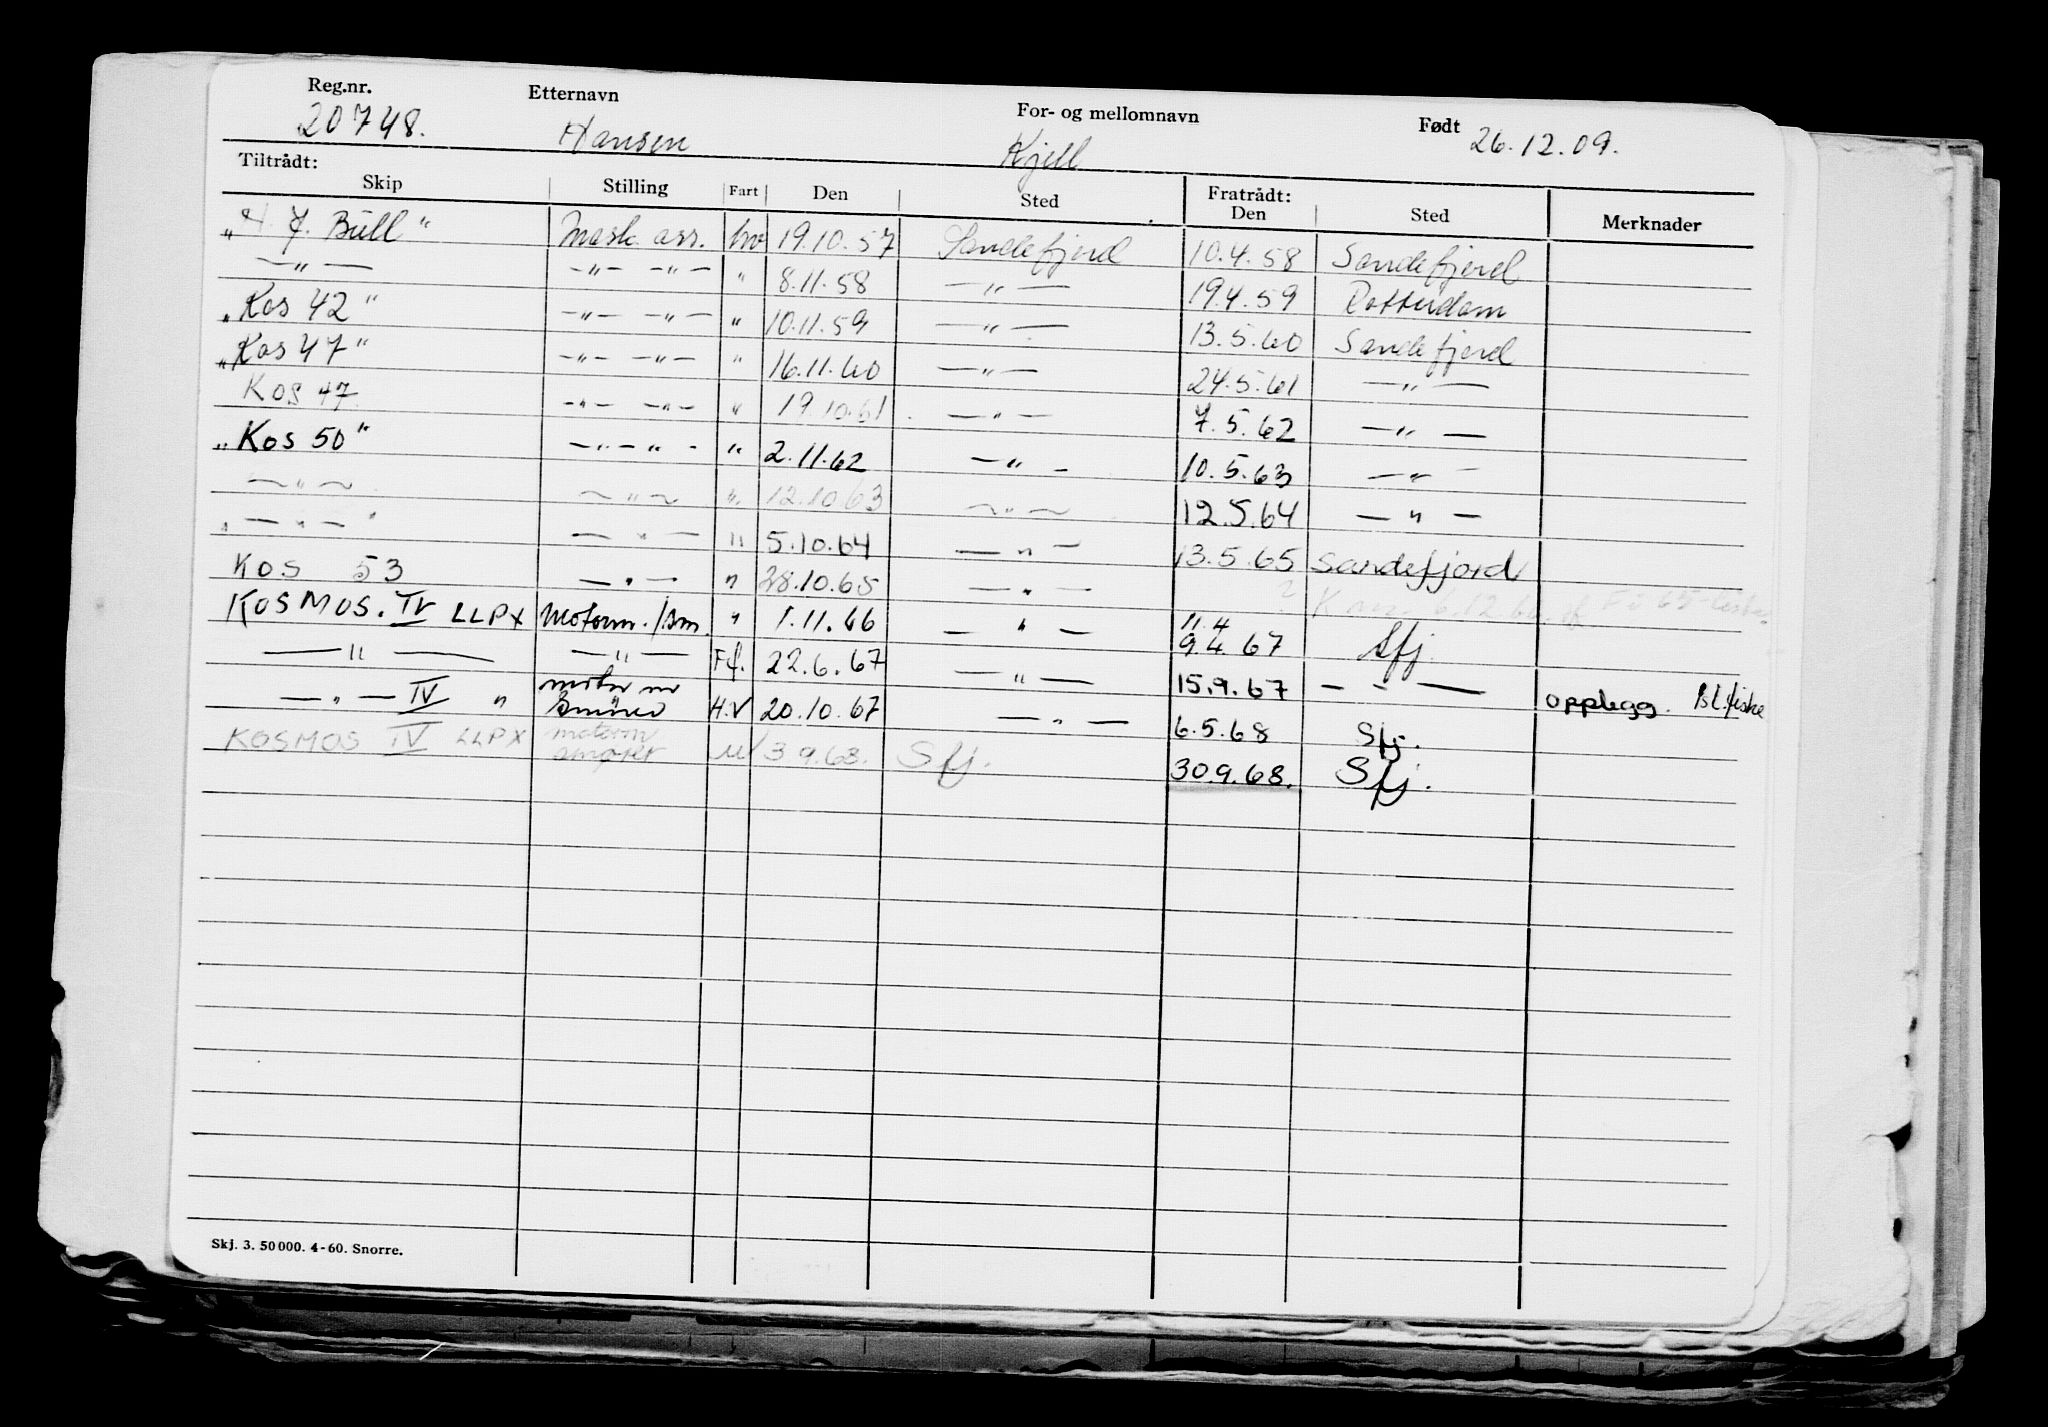 Reg.nr. Etternavn For- og mellomnavn Født
20748. Hansen Kjell 26.12.09.
Tiltrådt: Fratrådt:
Skip Stilling Fart Den Sted Den Sted Merknader
„H. J. Bull" Mask. ass. hv 19.10.57 Sandefjord 10.4.58 Sandefjord
—„— —„— —„— " 8.11.58 —„— 19.4.59 Rotterdam
„Kos 42" —„— —„— " 10.11.59 —„— 13.5.60 Sandefjord
„Kos 47" —„— —„— " 16.11.60 —„— 24.5.61 —„—
Kos 47 —„— —„— " 19.10.61 —„— 7.5.62 —„—
„Kos 50" —„—„— " 2.11.62 —„— 10.5.63 —„—
—„— —„— " 12.10.63 —„— 12.5.64 —„—
„—„—" —„— " 5.10.64 —„— 13.5.65 Sandefjord
KOS 53 —„— " 28.10.65 —„— ?
KOSMOS. IV LLPX Motorm./Sm. " 1.11.66 —„— 11.4 9.4.67 Sfj.
—„— —„— Ff. 22.6.67 —„— 15.9.67 — - — opplegg. Bl.fiske
—„— IV " H.V 20.10.67 —„— 6.5.68 Sfj.
KOSMOS IV LLPX motorm smører 3.9.68. Sfj. 30.9.68. Sfj.
Skj. 3. 50000. 4-60. Snorre.